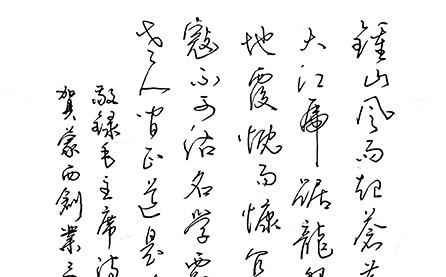 鍾山风雨起蒼
大江虎踞龍
地覆慨而慷宜
寇不可沽名学霸
老人间正道是
敬録毛主席詩
賀蒙西創業